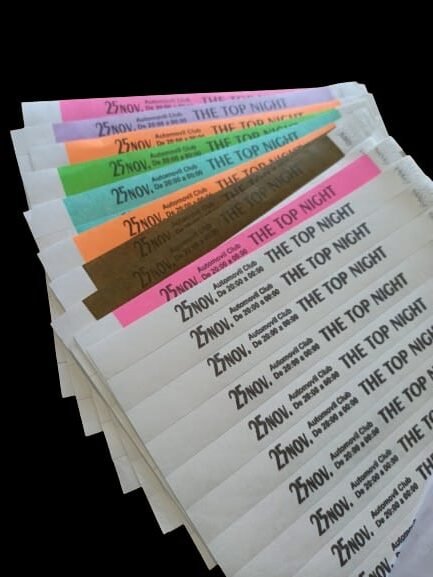 25NOV. Automovil Club De 20:00 a 00:00 THE TOP NIGHT
25NOV. Automovil Club De 20:00 a 00:00 THE TOP NIGHT
25NOV. Automovil Club De 20:00 a 00:00 THE TOP NIGHT
25NOV. Automovil Club De 20:00 a 00:00 THE TOP NIGHT
25NOV. Automovil Club De 20:00 a 00:00 THE TOP NIGHT
25NOV. Automovil Club De 20:00 a 00:00 THE TOP NIGHT
25NOV. Automovil Club De 20:00 a 00:00 THE TOP NIGHT
25NOV. Automovil Club De 20:00 a 00:00
25NOV. Automovil Club De 20:00 a 00:00 THE TOP NIGHT
25NOV. Automovil Club De 20:00 a 00:00 THE TOP NIGHT
25NOV. Automovil Club De 20:00 a 00:00 THE TOP NIGHT
25NOV. Automovil Club De 20:00 a 00:00 THE TOP NIGHT
25NOV. Automovil Club De 20:00 a 00:00 THE TOP NIGHT
25NOV. Automovil Club De 20:00 a 00:00 THE TOP
25NOV. Automovil Club De 20:00 a 00:00 THE TOP
25NOV. Automovil Club De 20:00 a 00:00 THE
25NOV. Automovil Club De 20:00 a 00:00